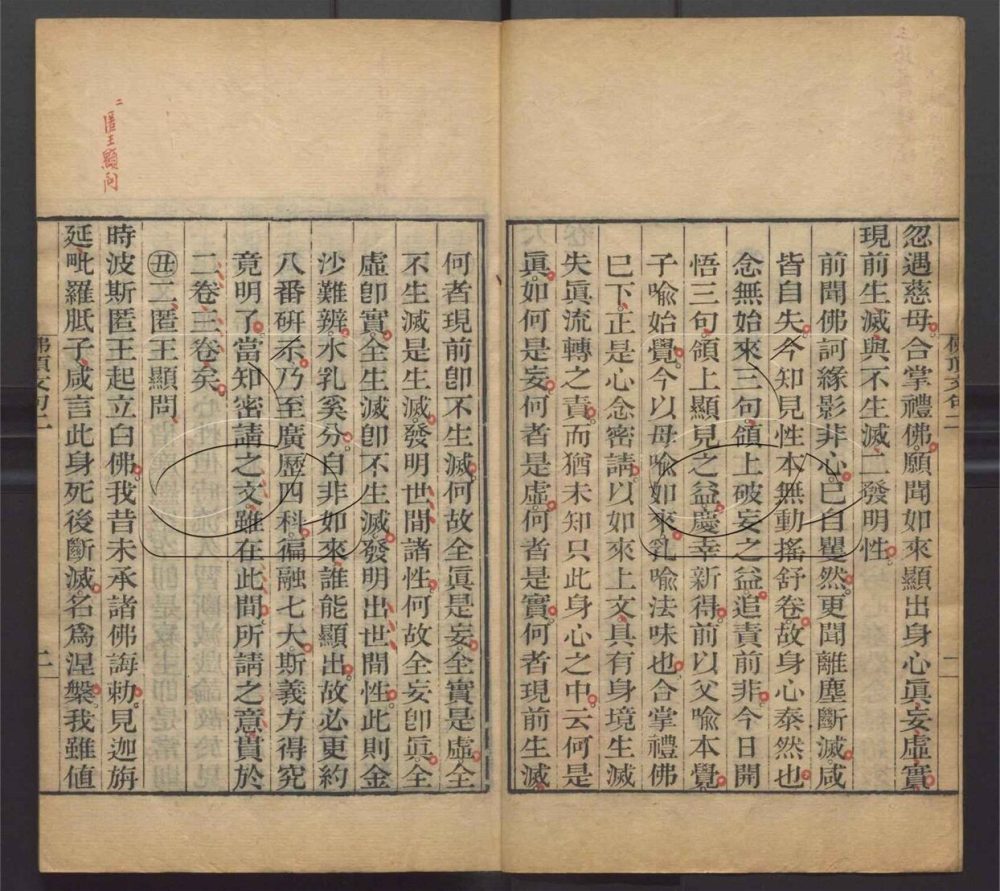 忽遇慈母合掌禮佛願聞如來顯出身心眞妄虛實
現前生滅與不生滅二發明性
前聞佛訶緣影非心已自矍然更聞離塵斷滅咸
皆自失今知見性本無動搖舒卷故身心泰然也
念無始來三句領上破妄之益追責前非今日開
悟三句領上顯見之益慶幸新得前以父喩本覺
子喩始覺今以母喩如來乳喩法味也合掌禮佛
巳下正是心念密請以如來上文具有身境生滅
失眞流轉之責而猶未知只此身心之中云何是
眞如何是妄何者是虛何者是實何者現前生滅
二匿王顯問
何者現前卽不生滅何故全眞是妄全實是虛全
不生滅是生滅發明世間諸性何故全妄卽眞全
虛卽實全生滅卽不生滅發明出世間性此則金
沙難辨水乳奚分自非如來誰能顯出故必更約
八番硏示乃至廣歷四科徧融七大斯義方得究
竟明了當知密請之文雖在此間所請之意貫於
二卷三卷矣
丑二匿王顯問
時波斯匿王起立白佛我昔未承諸佛誨勅見迦旃
延毗羅胝子咸言此身死後斷滅名爲涅槃我雖値
佛頂文句二
二